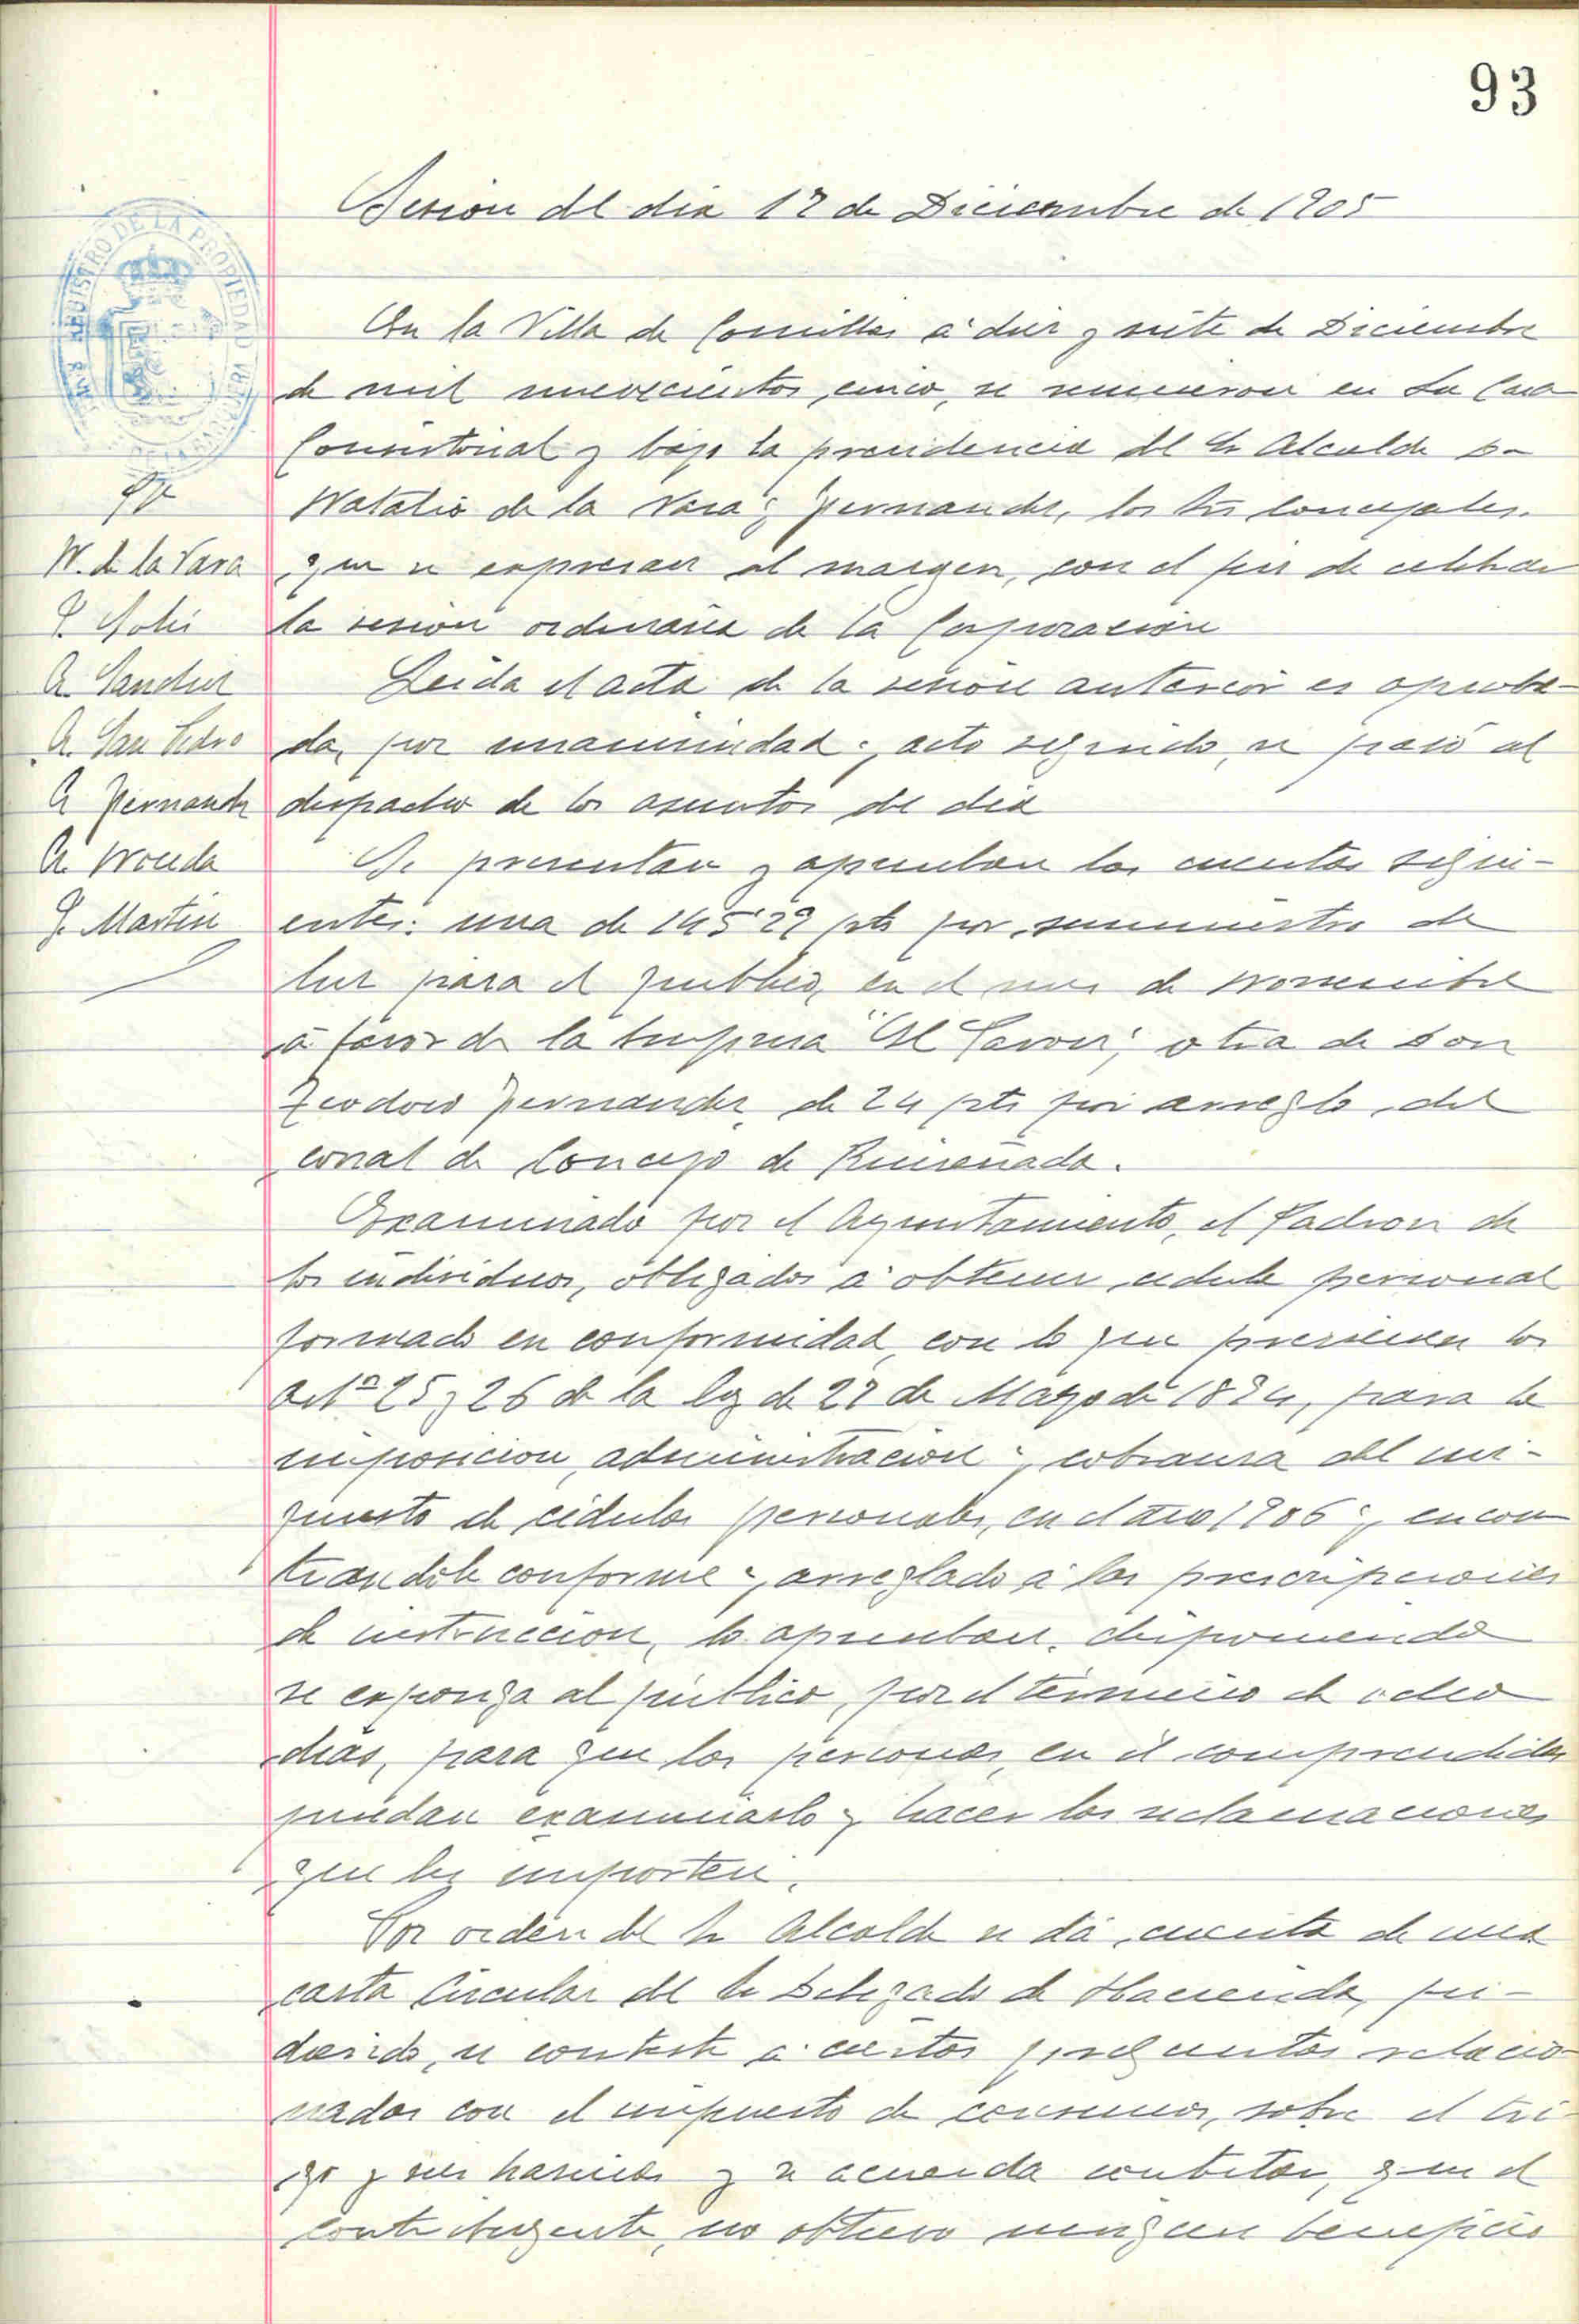 93
Sesion del dia 17 de Diciembre de 1905
REGISTRO DE LA PROPIEDAD
En la Villa de Comillas a diez y siete de Diciembre
de mil novecientos cinco, se reunieron en la Casa
Consistorial y bajo la presidencia del Sr Alcalde Dn
Natalio de la Vara y Fernandez, los Srs Concejales.
que se expresan al margen, con el fin de celebrar
la sesion ordinaria de la Corporación
N. de la Vara
A. Sanchez
A. San Pedro
A Fernandez
J. Martin
Leida el acta de la sesión anterior es aproba-
da, por unanimidad y acto seguido, se pasó al
despacho de los asuntos del dia
Se presentan y aprueban las cuentas sigui-
entes: una de 145'29 pts por suministro de
luz para el publico, en el mes de Noviembre
a favor de la Empresa "El            otra de Don
Teodoro Fernandez de 24 pts por arreglo del
corral de Concejo de Ruiseñada.
Examinado por el Ayuntamiento, el Padron de
los individuos, obligados a obtener cedula personal
formado en conformidad, con lo que previenen los
Artos 25 y 26 de la ley de 27 de Mayo de 1884, para la
imposicion, administracion y cobranza del im-
puesto de cédulas personales, en el año 1906 y encon
trandole conforme y arreglado a las prescripciones
de instruccion, lo aprueban, disponiendo
se exponga al público, por el término de ocho
dias, para que las personas, en él comprendidas
puedan examinarlo y hacer las reclamaciones
que les importen.
Por orden del Sr Alcalde se dá cuenta de una
carta Circular del Sr Delegado de Hacienda, pi-
diendo, se conteste a ciertas preguntas relacio-
nadas con el impuesto de consumos, sobre el tri-
go y sus harinas y se acuerda contestar, que el
contribuyente, no obtuvo ningun beneficio